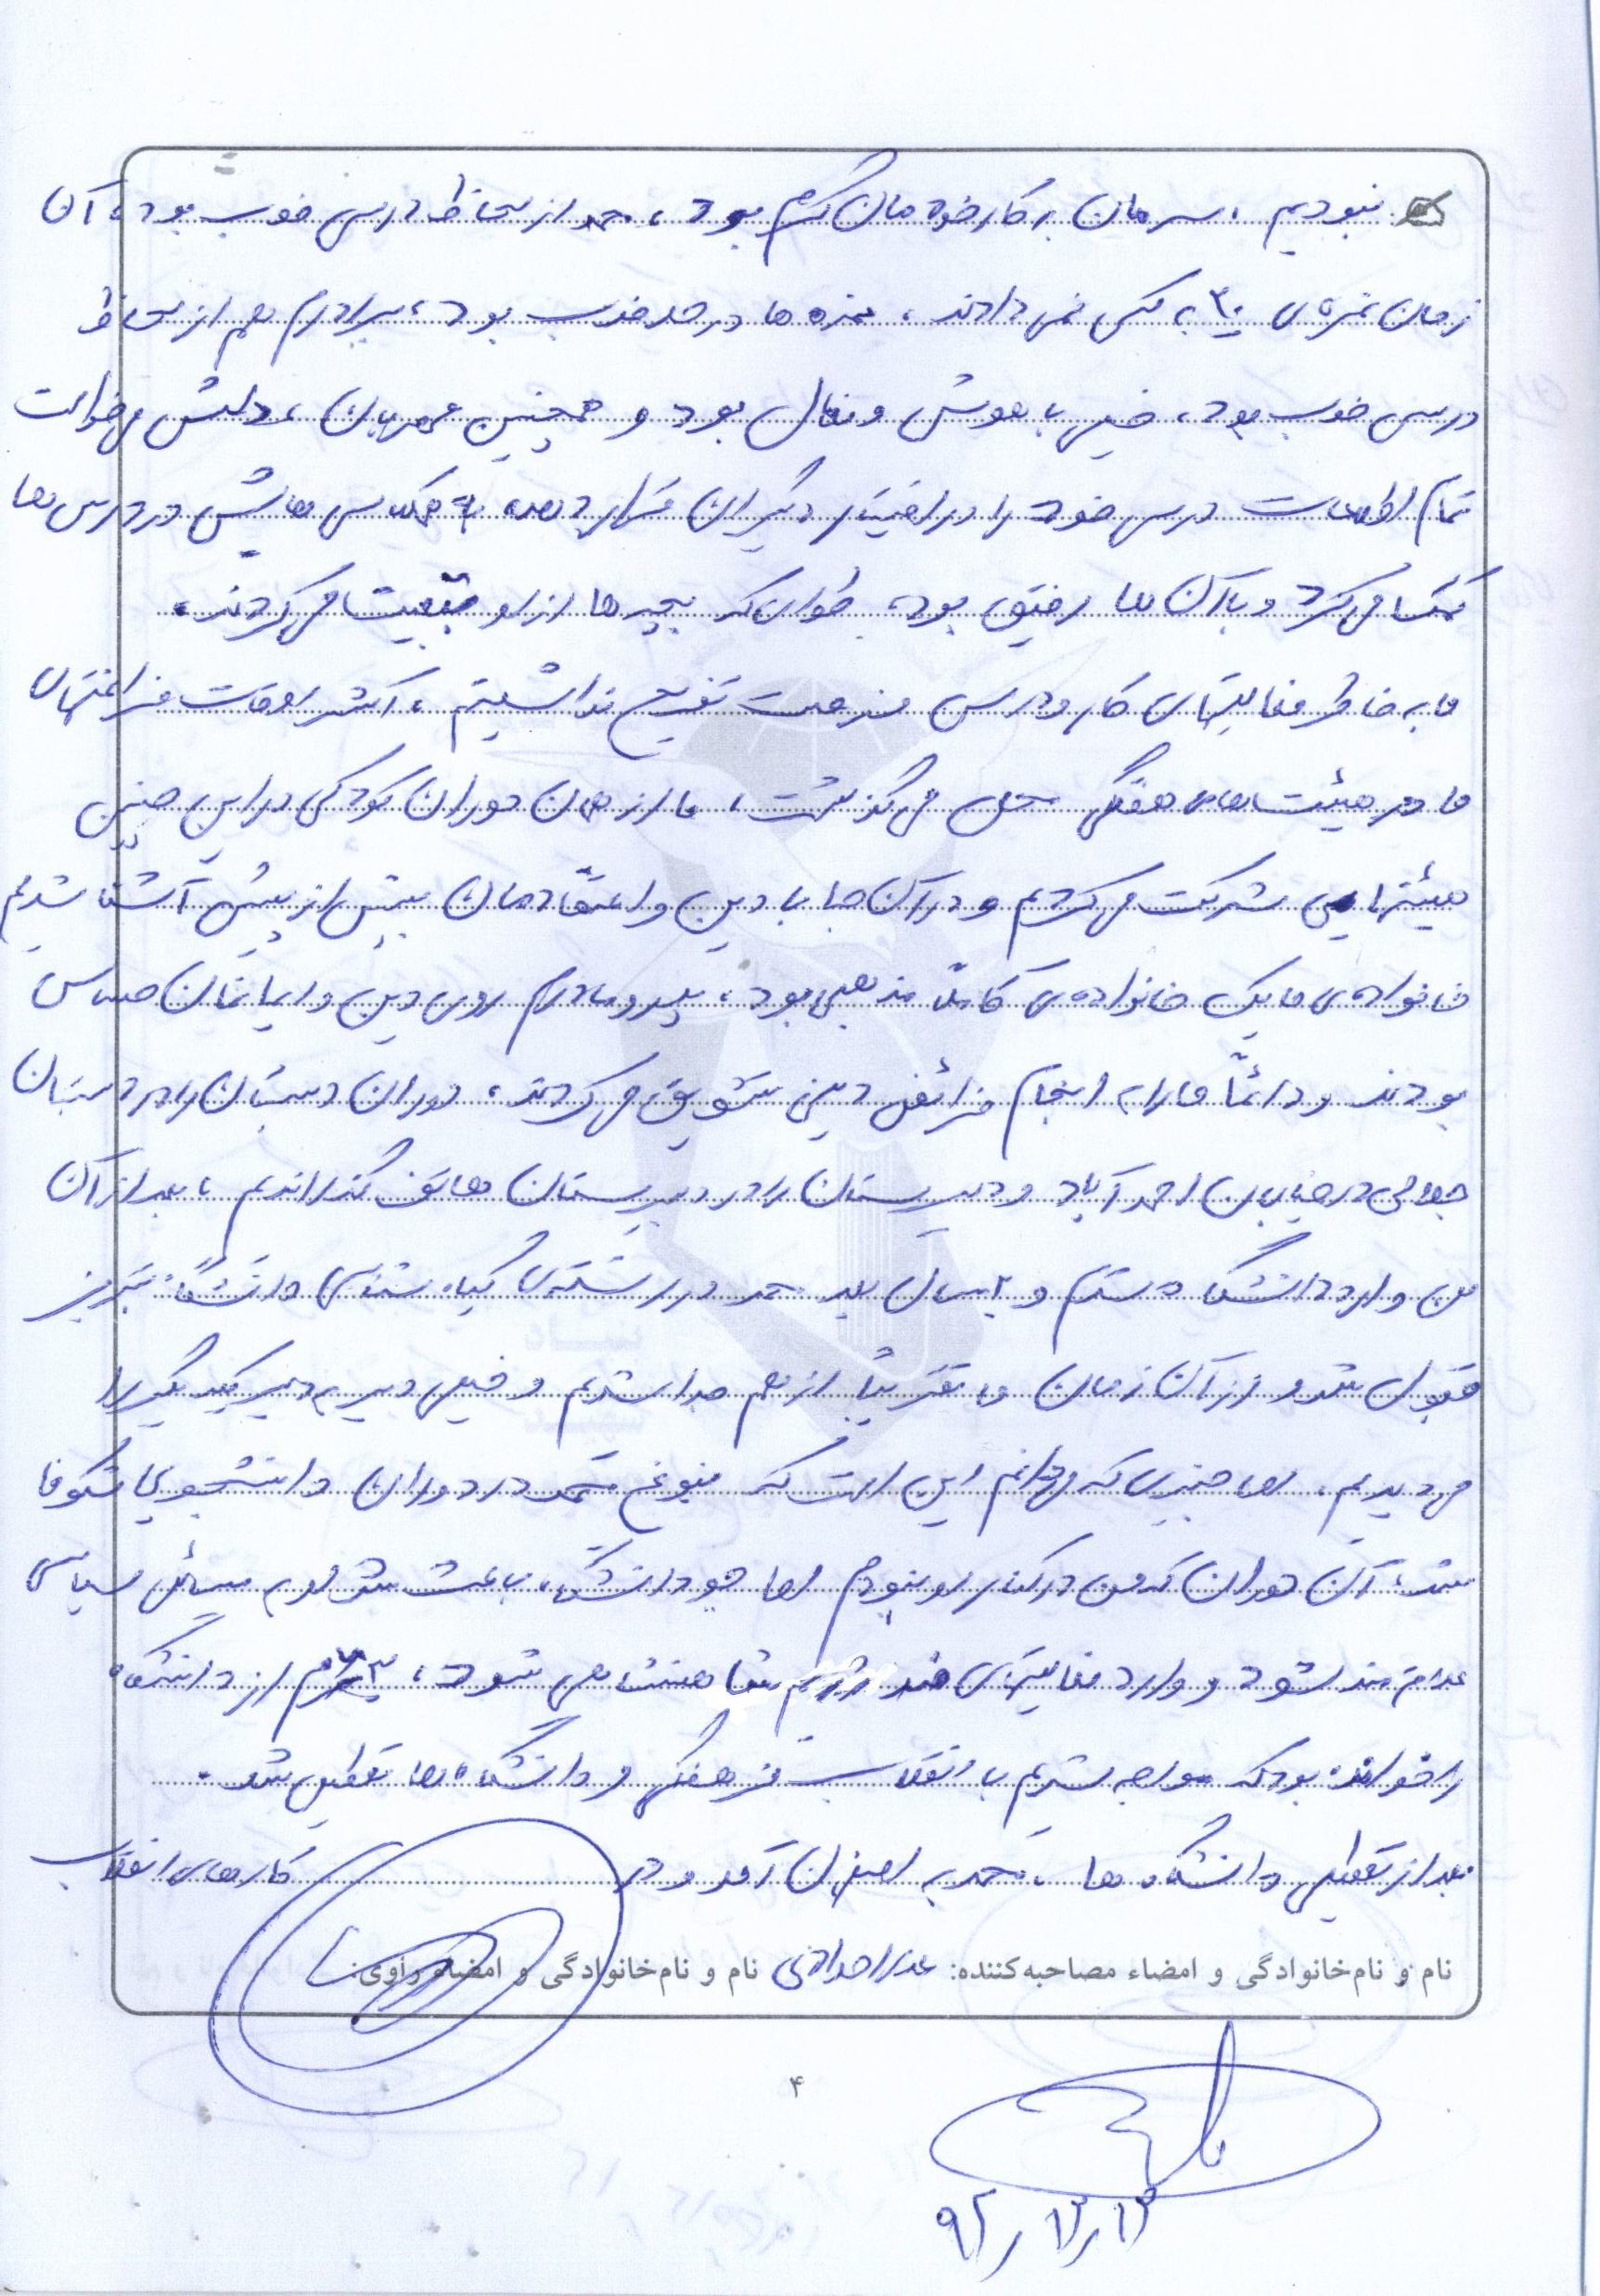 نبودیم، سرمان به کار خودمان گرم بود، محمد از لحاظ درسی خوب بود، آن
زمان نمره‌ی ۲۰ به کسی نمی دادند، نمره ها در حد خوب بود، برادرم هم از لحاظ
درسی خوب بود، خیلی با هوش و فعال بود و همچنین مهربان، دلش می خواست
تمام اطلاعات درسی خود را در اختیار دیگران قرار دهد، به همکلاسی هایش در درس ها
کمک می کرد و با آن ها رفیق بود، طوری که بچه ها از او تبعیت می کردند.
ما به خاطر فعالیتهای کار و درس فرصت تفریح نداشتیم، اکثر اوقات فراغتهای
ما در هیئت های هفتگی محل می گذشت، ما از همان دوران کودکی در این چنین
هیئتهایی شرکت می کردیم و در آن جا با دین و اعتقادمان بیش از پیش آشنا شدیم
خانواده ی ما یک خانواده ی کاملاً مذهبی بود، پدر و مادرم روی دین و ایمانمان حساس
بودند و دائماً ما را به انجام فرائض دینی تشویق می کردند، دوران دبستان را در دبستان
جلالی در خیابان احمدآباد و دبیرستان را در دبیرستان هاتف گذراندیم، بعد از آن
من وارد دانشگاه شدم و ۲ سال بعد محمد در رشته ی گیاه شناسی دانشگاه تبریز
قبول شد و از آن زمان ما تقریباً از هم جدا شدیم و خیلی دیر به دیر یکدیگر را
می دیدیم، اما چیزی که می دانم این است که نبوغ محمد در دوران دانشجویی شکوفا
شد، آن دوران که من در کنار او نبودم اما جو دانشگاه باعث شد او به مسائل سیاسی
علاقمند شود و وارد فعالیتهای ضد رژیم شاهنشاهی شود، ترم از دانشگاه
را خوانده بود که مواجه شدیم با انقلاب فرهنگی و دانشگاه ها تعطیل شد.
بعد از تعطیلی دانشگاه ها، محمد به اصفهان آمد و در کارهای انقلاب
نام و نام‌خانوادگی و امضاء مصاحبه‌کننده: نام و نام‌خانوادگی و امضاء راوی:
۴
۹۲/۱۲/۱۳